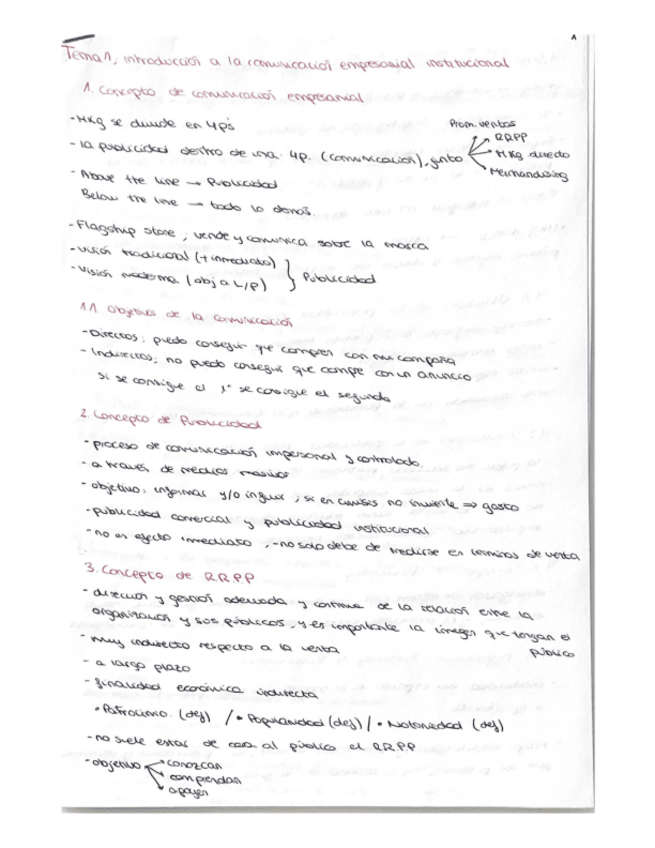 1
Tema 1, introducción a la comunicación empresarial institucional
1. Concepto de comunicación empresarial
- Mkg se divide en 4ps
- la publicidad dentro de una 4p. (comunicación), junto
Prom. ventas
RRPP
Mkg directo
Merchandising
- Above the line → Publicidad
Below the line → todo lo demás
- Flagship store, vende y comunica sobre la marca
- Visión tradicional (+ inmediato)
- Visión moderna (obj a L/P)
Publicidad
1.1. Objetivos de la comunicación
- Directos; puedo conseguir que compren con mi campaña
- Indirectos; no puedo conseguir que compre con un anuncio
Si se consigue el 1º se consigue el segundo
2. Concepto de Publicidad
- proceso de comunicación impersonal y controlado
- a través de medios masivos
- objetivo, informar y/o influir, si en crisis no invierte ⇒ gasto
- publicidad comercial y publicidad institucional
- no en efecto inmediato, - no solo debe de medirse en términos de venta
3. Concepto de RRPP
- dirección y gestión adecuada y continua de la relación entre la
organización y sus públicos, y es importante la imagen que tengan el
público
- muy indirecto respecto a la venta
- a largo plazo
- finalidad económica indirecta
• Patrocinio. (def) / • Popularidad (def) / • Notoriedad (def)
- no suele estar de cara al público el RRPP
- objetivo
conozcan
comprendan
apoyen